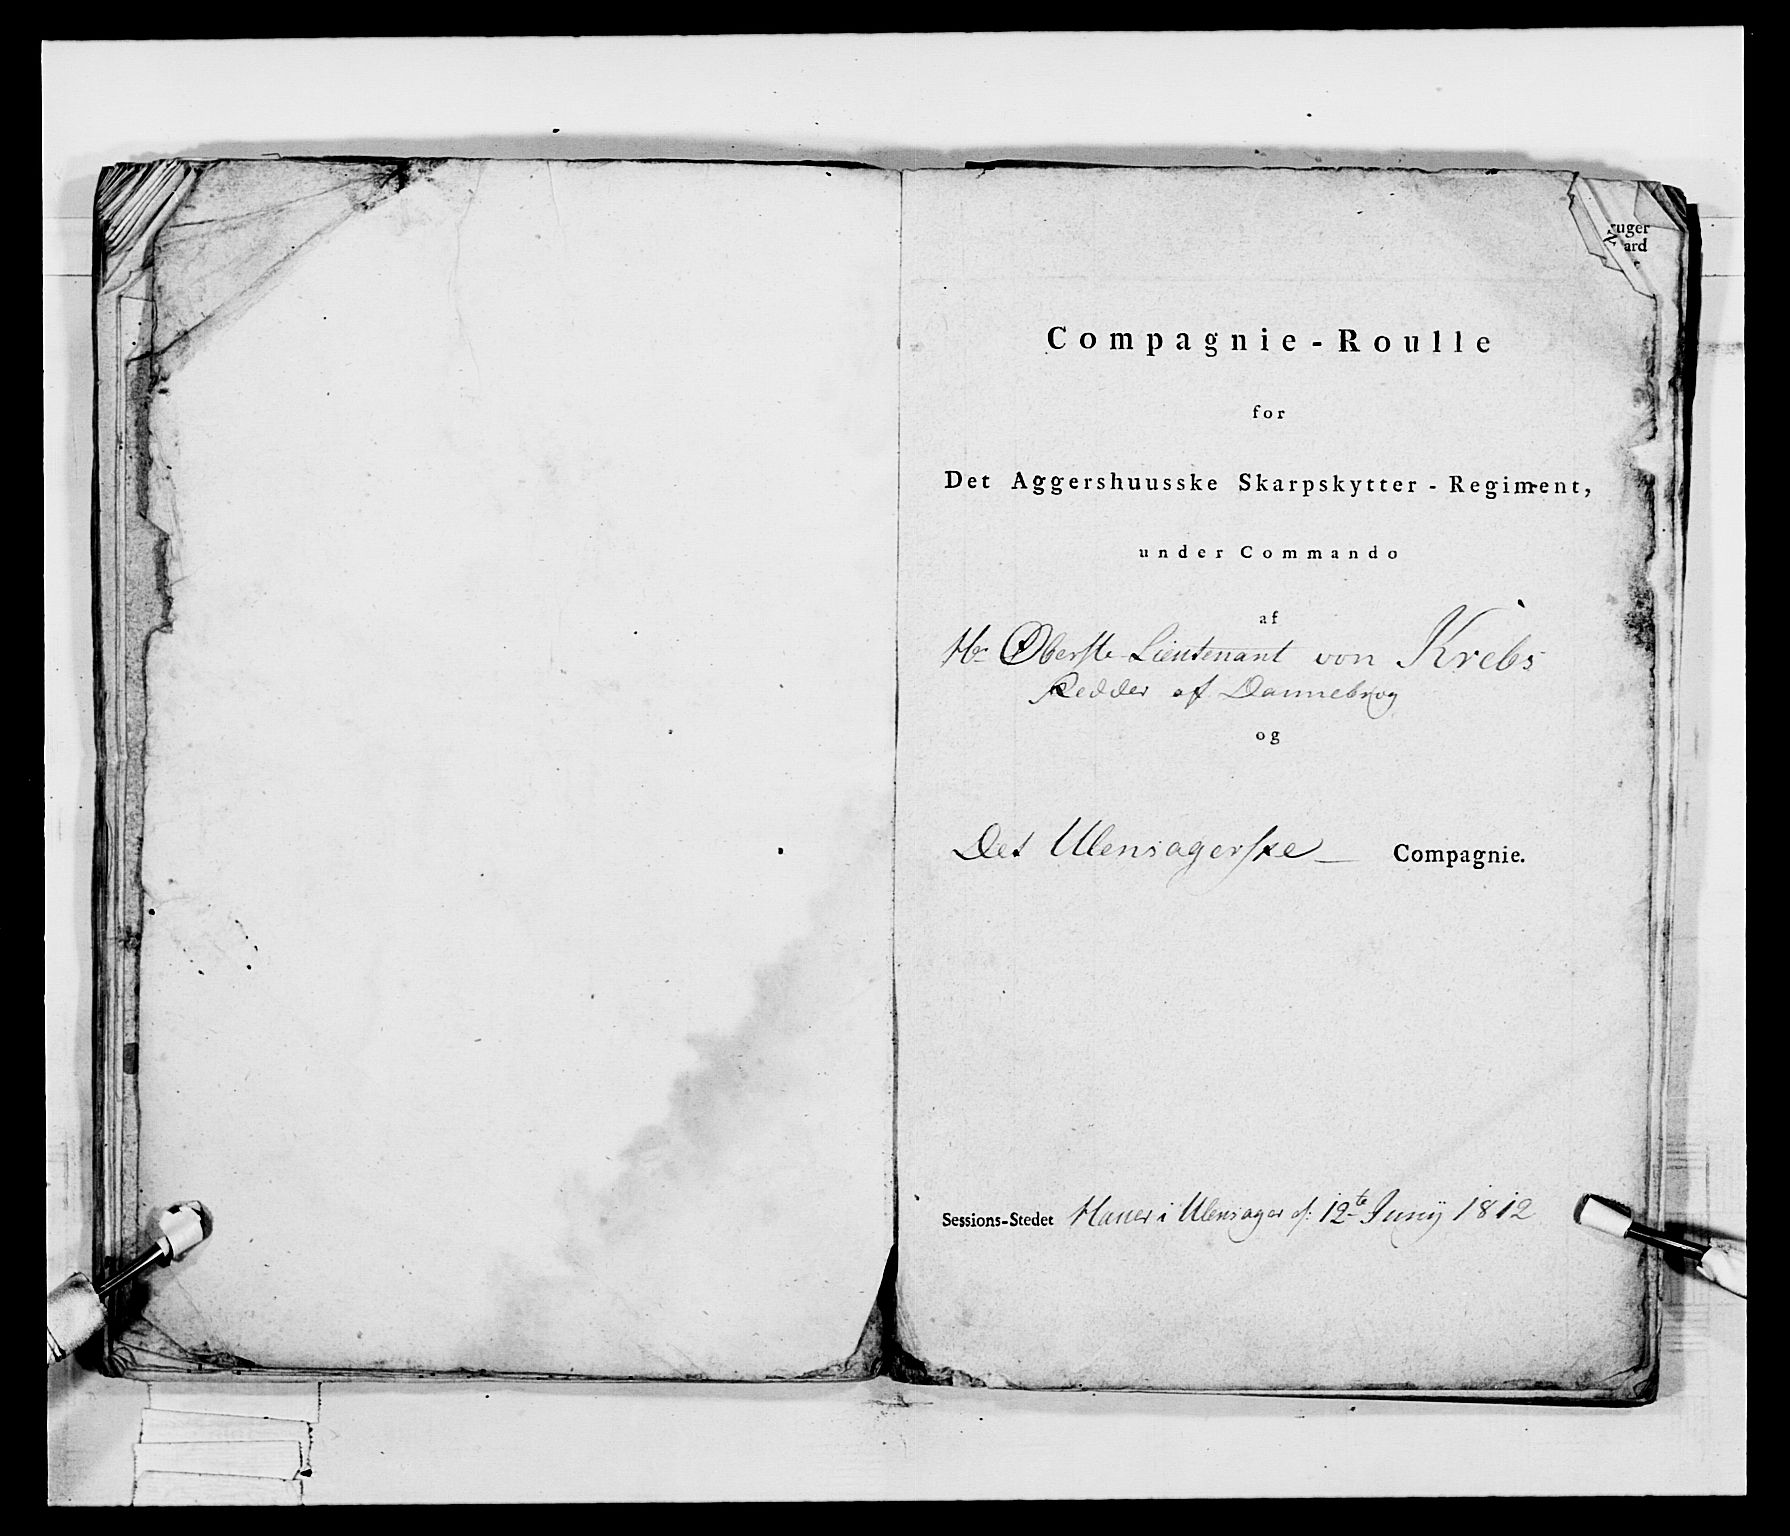 ruger
ard
Compagnie-Roulle
for
Det Aggershuusske Skarpskytter-Regiment,
under Commando
af
Hr Oberste-Lieutenant von Krebs
Redder af Dannebrog
og
Det Ulensagerske Compagnie.
Sessions-Stedet Hauer i Ulensager d: 12te Junij 1812